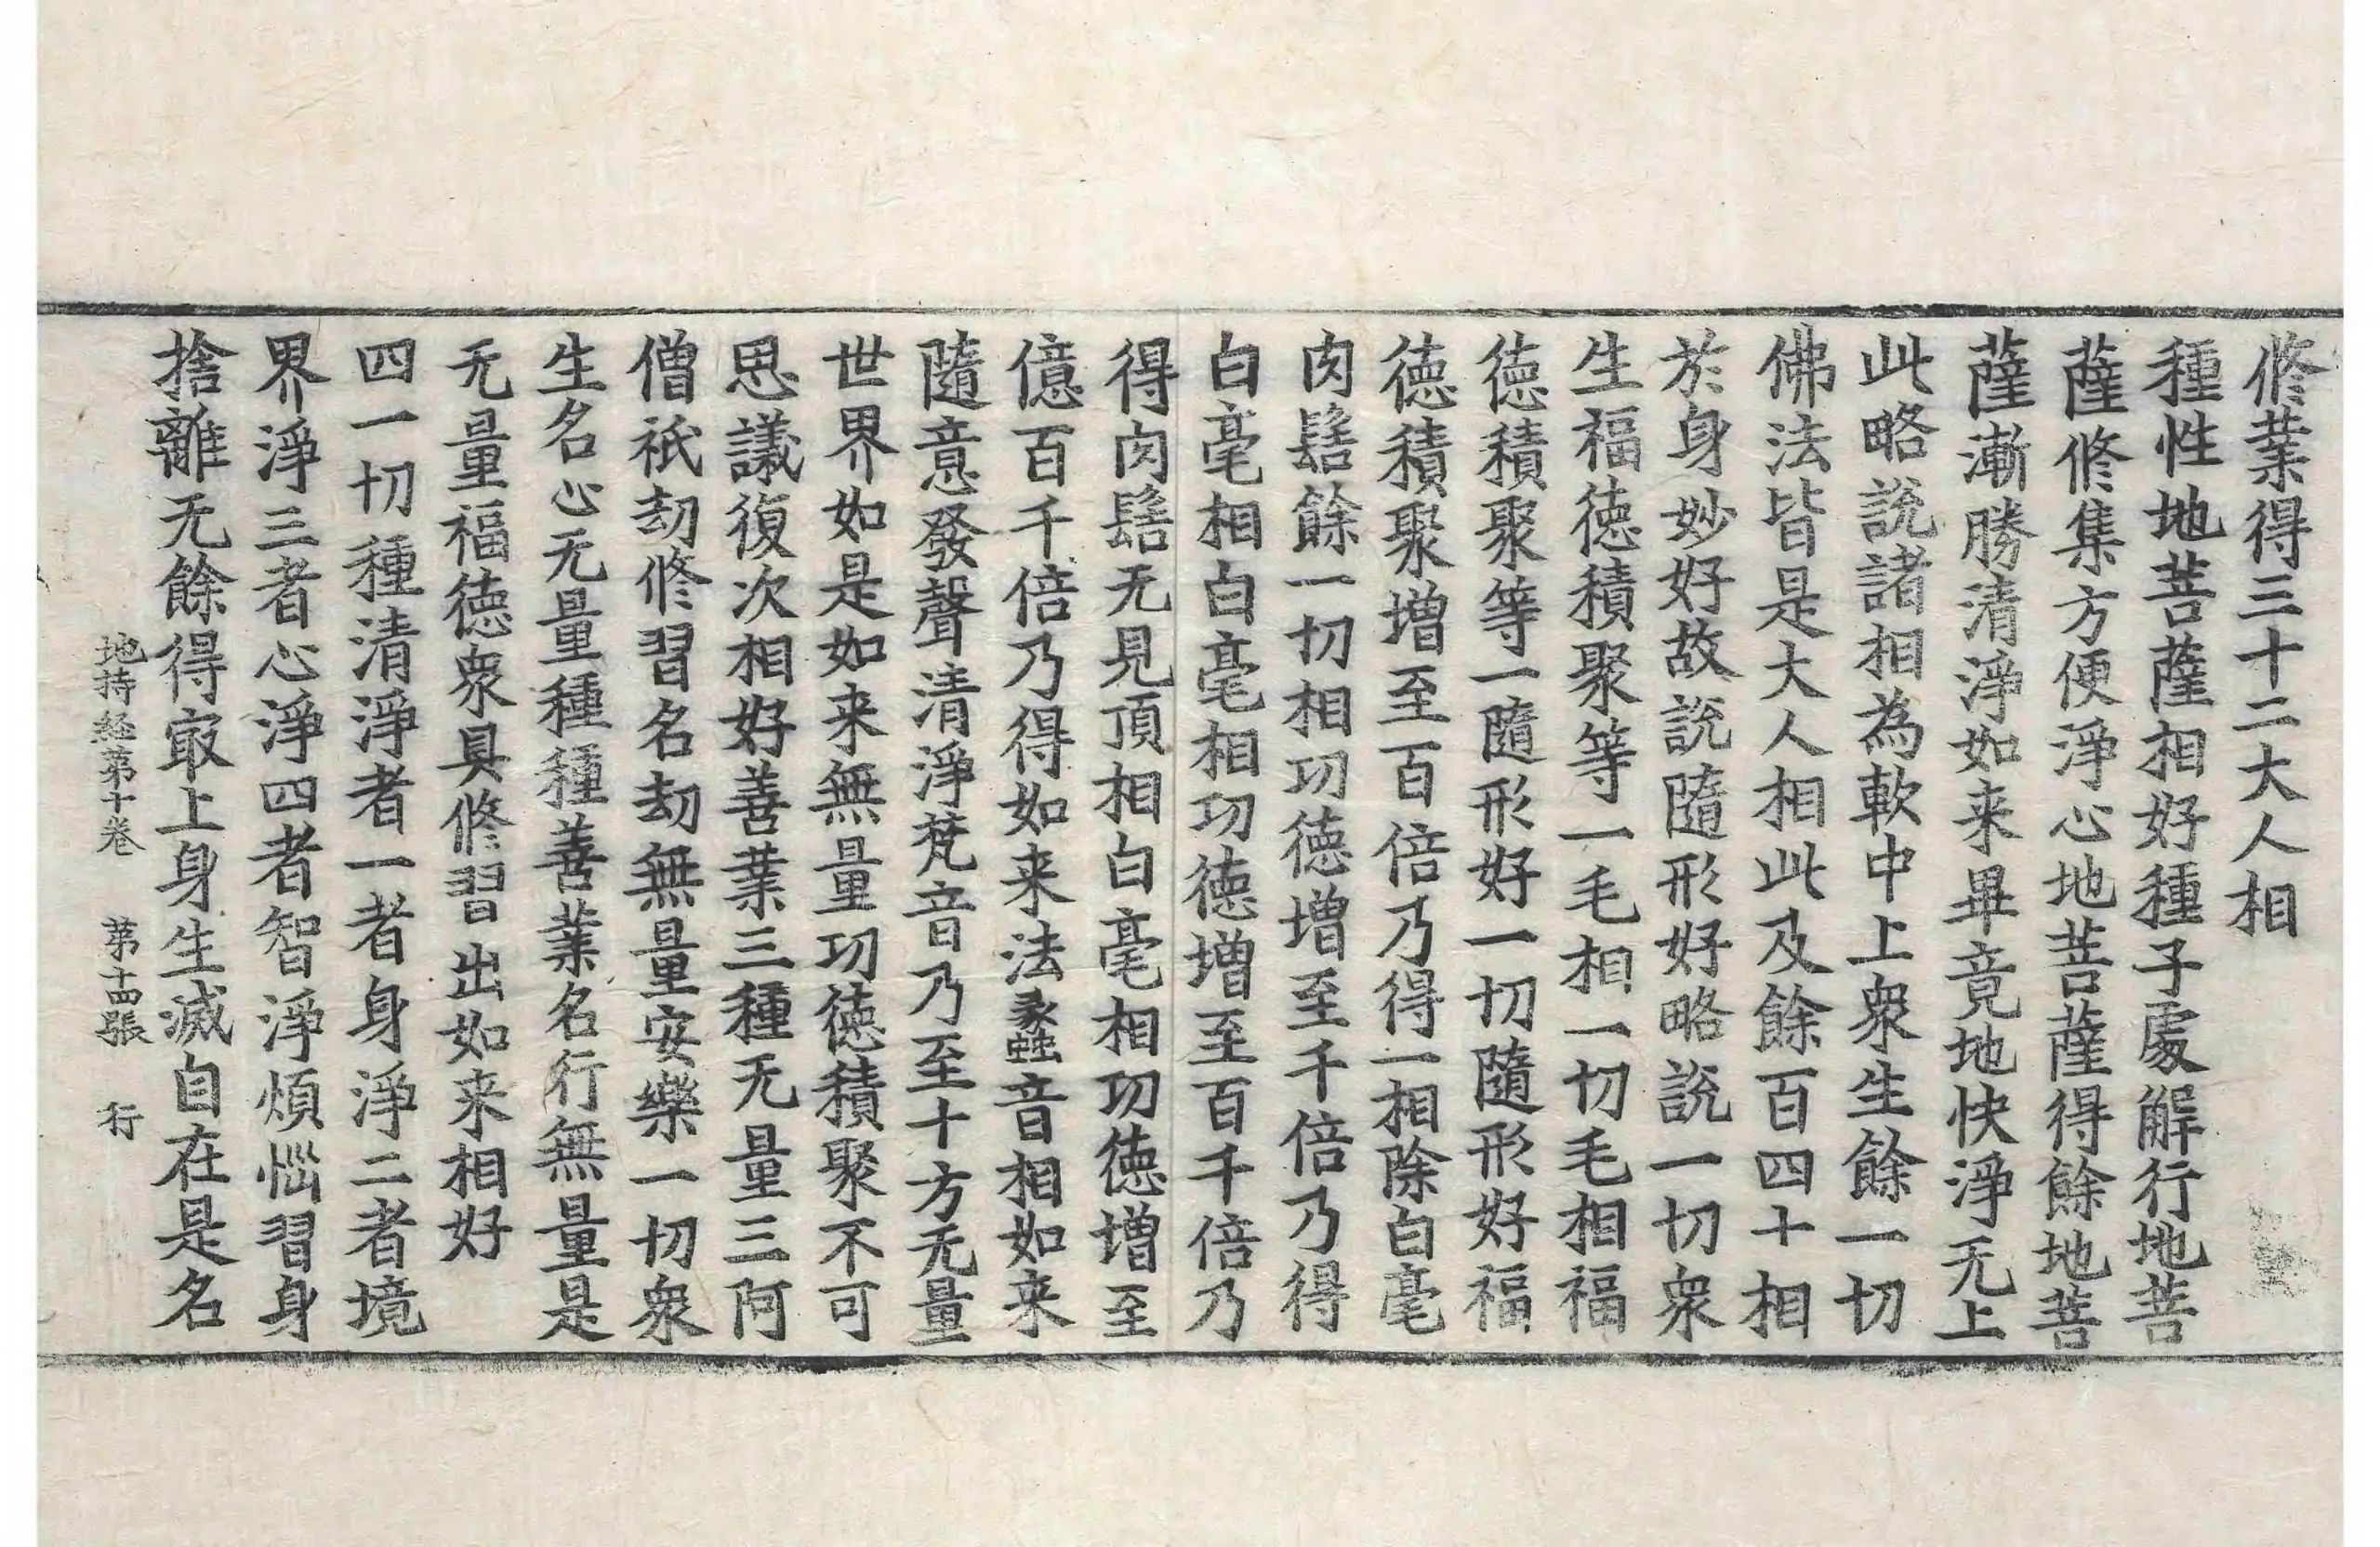 修業得三十二大人相
種性地菩薩相好種子處解行地菩
薩修集方便淨心地菩薩得餘地菩
薩漸勝清淨如来畢竟地快淨无上
此略說諸相為軟中上衆生餘一切
佛法皆是大人相此及餘百四十相
於身妙好故說隨形好略說一切衆
生福德積聚等一毛相一切毛相福
德積聚等一隨形好一切隨形好福
德積聚增至百倍乃得一相除白毫
肉髻餘一切相功德增至千倍乃得
白毫相白毫相功德增至百千倍乃
得肉髻无見頂相白毫相功德增至
億百千倍乃得如来法蠡音相如来
隨意發聲清淨梵音乃至十方无量
世界如是如来無量功德積聚不可
思議復次相好善業三種无量三阿
僧祇劫修習名劫無量安樂一切衆
生名心无量種種善業名行無量是
无量福德衆具修習出如来相好
四一切種清淨者一者身淨二者境
界淨三者心淨四者智淨煩惱習身
捨離无餘得冣上身生滅自在是名
地持経第十卷 第十四張 行